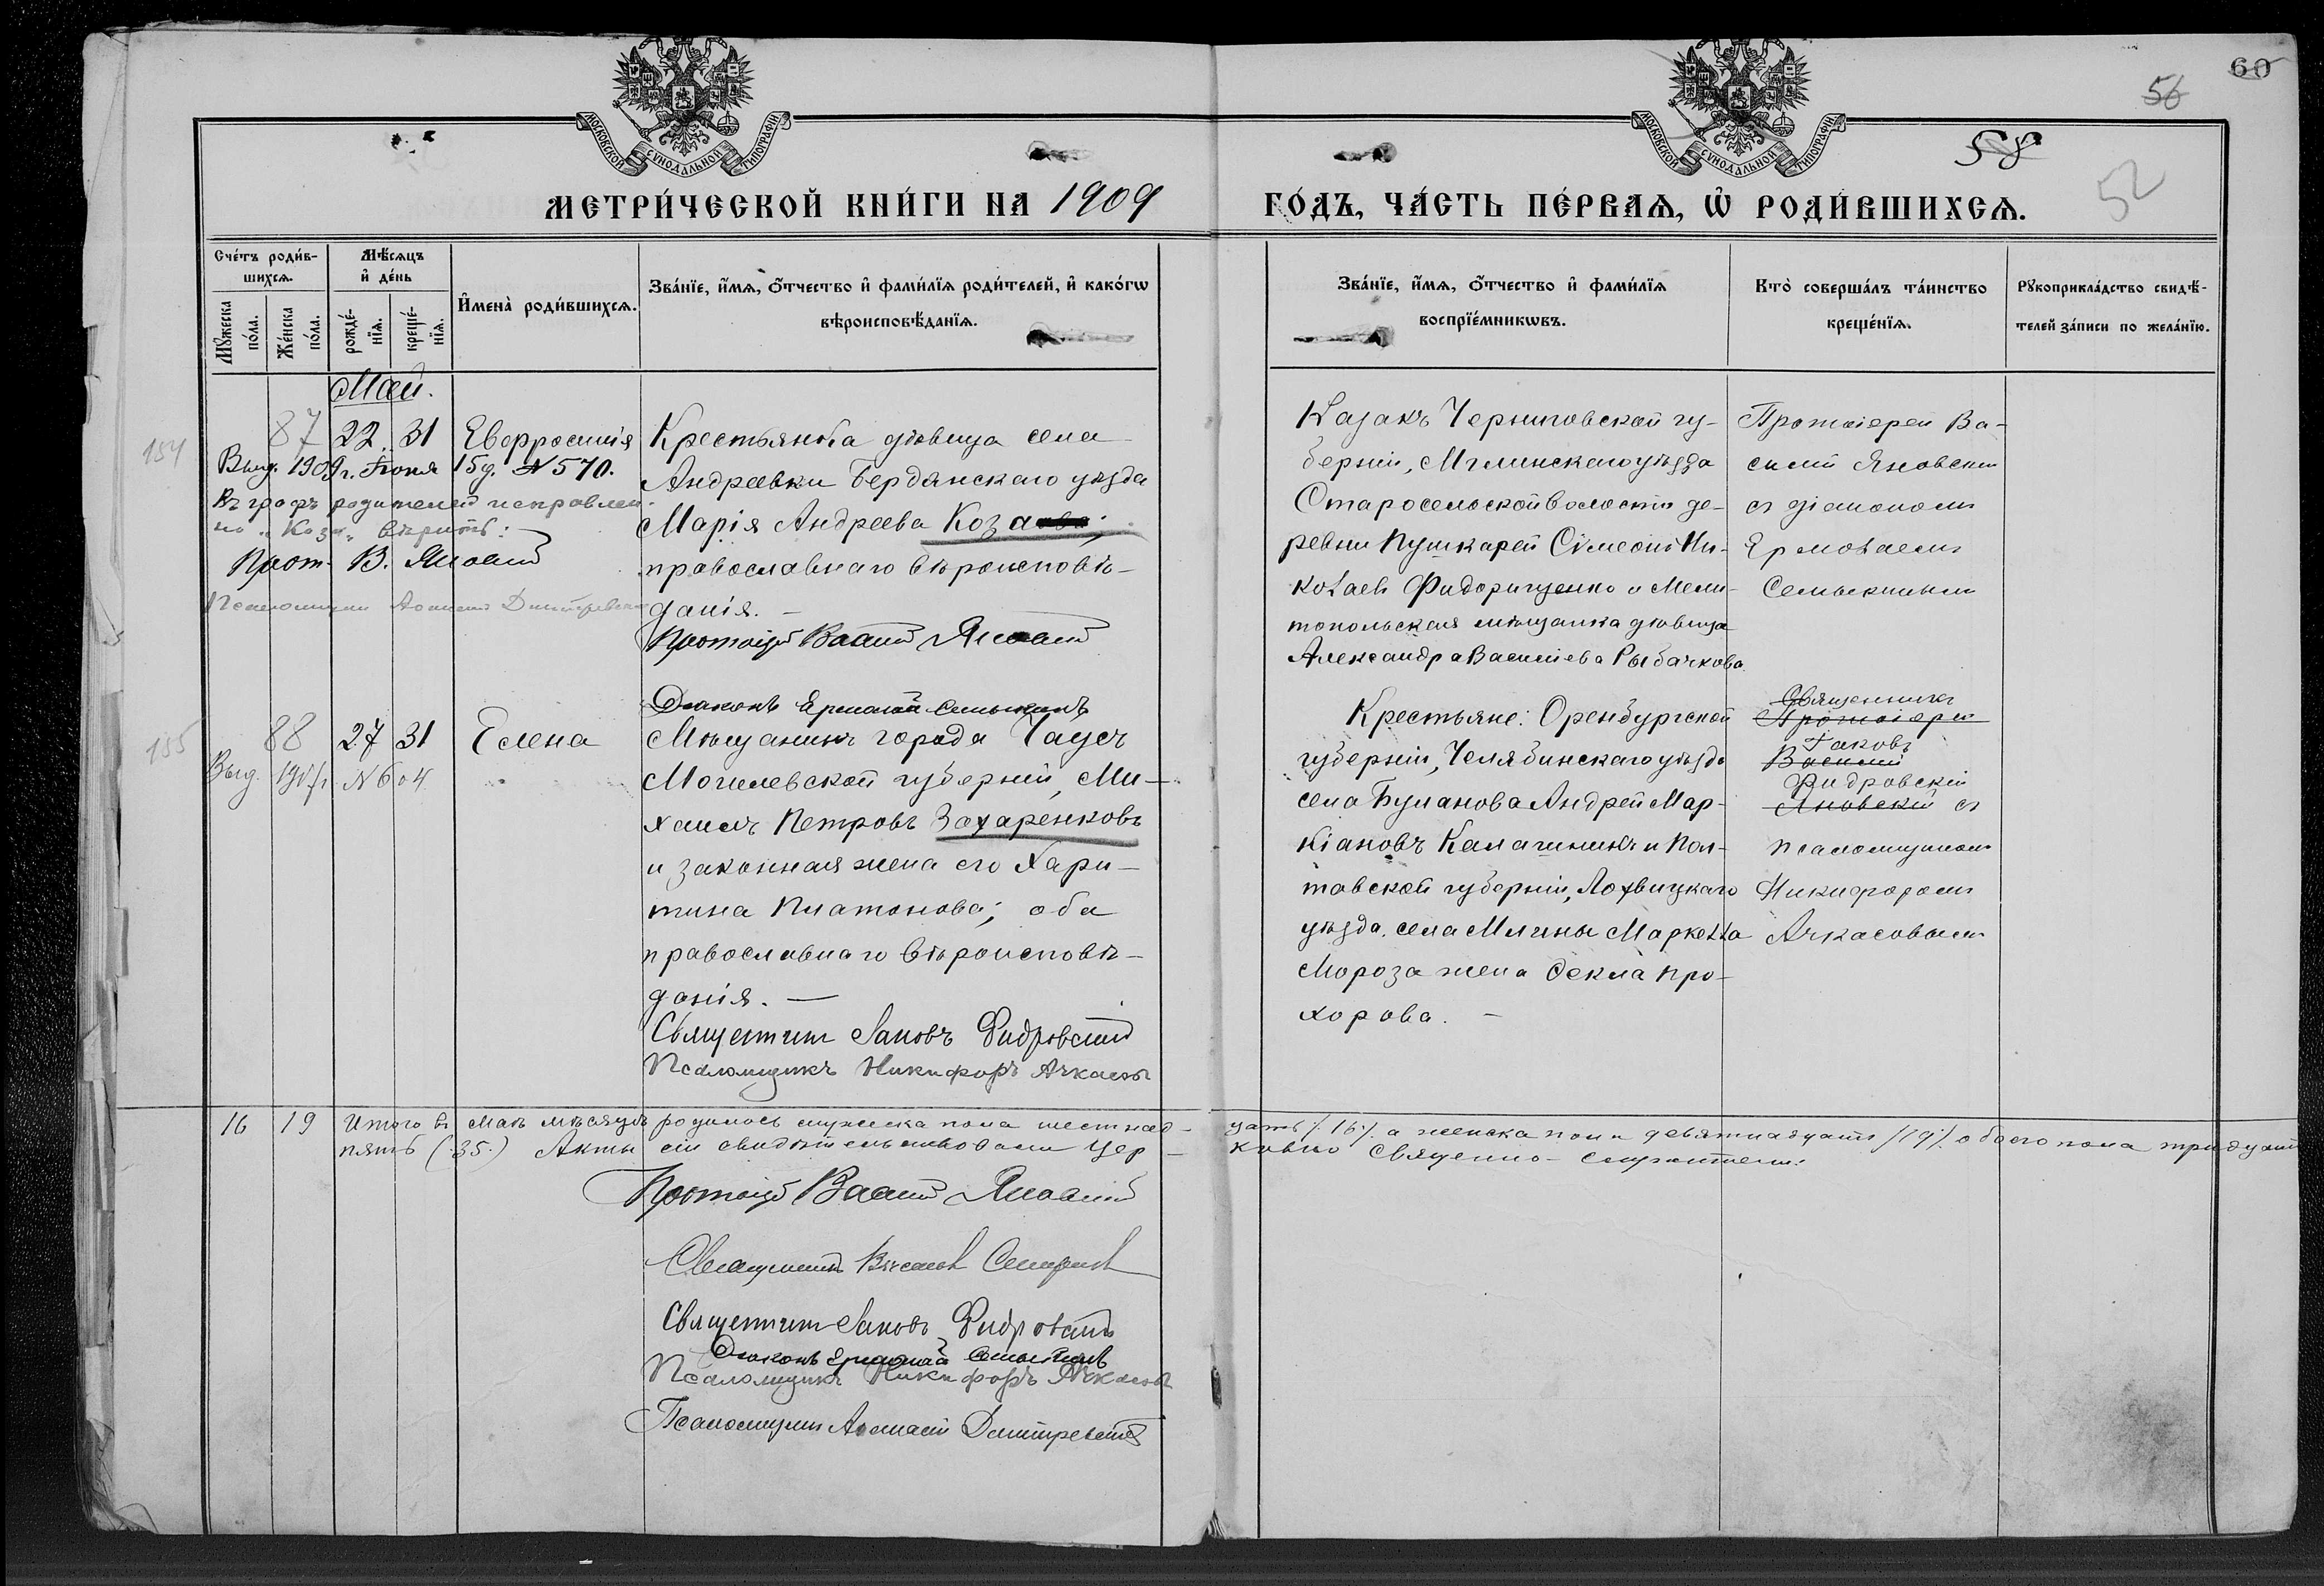 МОСКОВСКОЙ СѴНОДАЛЬНОЙ ТИПОГРАФІИ
МОСКОВСКОЙ СѴНОДАЛЬНОЙ ТИПОГРАФІИ
60
56
58
52
МЕТРИ́ЧЕСКОЙ КНИ́ГИ НА 1909
ГО́ДЪ, ЧА́СТЬ ПЕ́РВАѦ, Ѡ҆ РОДИ́ВШИХСѦ.
Сче́тъ роди́в-
шихсѧ.
Мꙋ́жеска
по́ла.
Же́нска
по́ла.
Мѣ́сѧцъ
и҆ де́нь
рожде́-
нїѧ.
креще́-
нїѧ.
И҆мена̀ роди́вшихсѧ.
Зва́нїе, и҆́мѧ, ѻ҆́тчество и҆ фами́лїѧ роди́телей, и҆ како́гѡ
вѣроисповѣ́данїѧ.
Зва́нїе, и҆́мѧ, ѻ҆́тчество и҆ фами́лїѧ
воспрїе́мникѡвъ.
Кто̀ соверша́лъ та́инство
креще́нїѧ.
Рꙋкоприкла́дство свидѣ́-
телей за́писи по жела́нїю.
Май.
154
87 22. 31 Евфросинія
Выд. 1909 г. Іюня 15 д. № 570.
Въ графѣ родителей исправлен-
но „Коза„ вѣрить:
Прот. В. Яновскій
Псаломщикъ Димитревскій
Крестьянка дѣвица села
Андреевки Бердянскаго уѣзда
Марія Андреева Коза;
православнаго вѣроисповѣ-
данія. —
Протоіерей Василій Яновскій
Діаконъ Ермолай Семыкинъ
Казакъ Черниговской гу-
берніи, Мглинскаго уѣзда
Старосельской волости де-
ревни Пушкарей Сѵмеонъ Ни-
колаевъ Фидорищенко и Мели-
топольская мѣщанка дѣвица
Александра Васильева Рыбачкова.
Протоіерей Ва-
силій Яновскій
съ діакономъ
Ермолаемъ
Семыкинымъ
155
88 27 31 Елена
Выд. № 604
Мѣщанинъ города Чаусъ
Могилевской губерніи, Ми-
хаилъ Петровъ Захаренковъ
и законная жена его Хари-
тина Платонова; оба
православнаго вѣроисповѣ-
данія. —
Священникъ Іаковъ Фидровскій
Псаломщикъ Никифоръ Ачкасовъ
Крестьяне: Оренбургской
губерніи, Челябинскаго уѣзда
села Буланова Андрей Мар-
кіановъ Калачиникъ и Пол-
тавской губерніи, Лохвицкаго
уѣзда, села Млины Маркелла
Мороза жена Ѳекла Про-
хорова. —
Священникъ
Протоіерей
Іаковъ
Василій
Фидровскій
Яновскій съ
псаломщикомъ
Никифоромъ
Ачкасовымъ
16 19 Итого въ маѣ мѣсяцѣ родилось мужеска пола шестнад-
цать /.16./. а женска пола девятнадцать /19/. обоего пола тридцать
пять (35.) Акты сіи свидѣтельствовали Цер-
ковно Священно-служители:
Протоіерей Василій Яновскій
Священникъ
Священникъ Іаковъ Фидровскій
Діаконъ Ермолай Семыкинъ
Псаломщикъ Никифоръ Ачкасовъ
Псаломщикъ Димитревскій